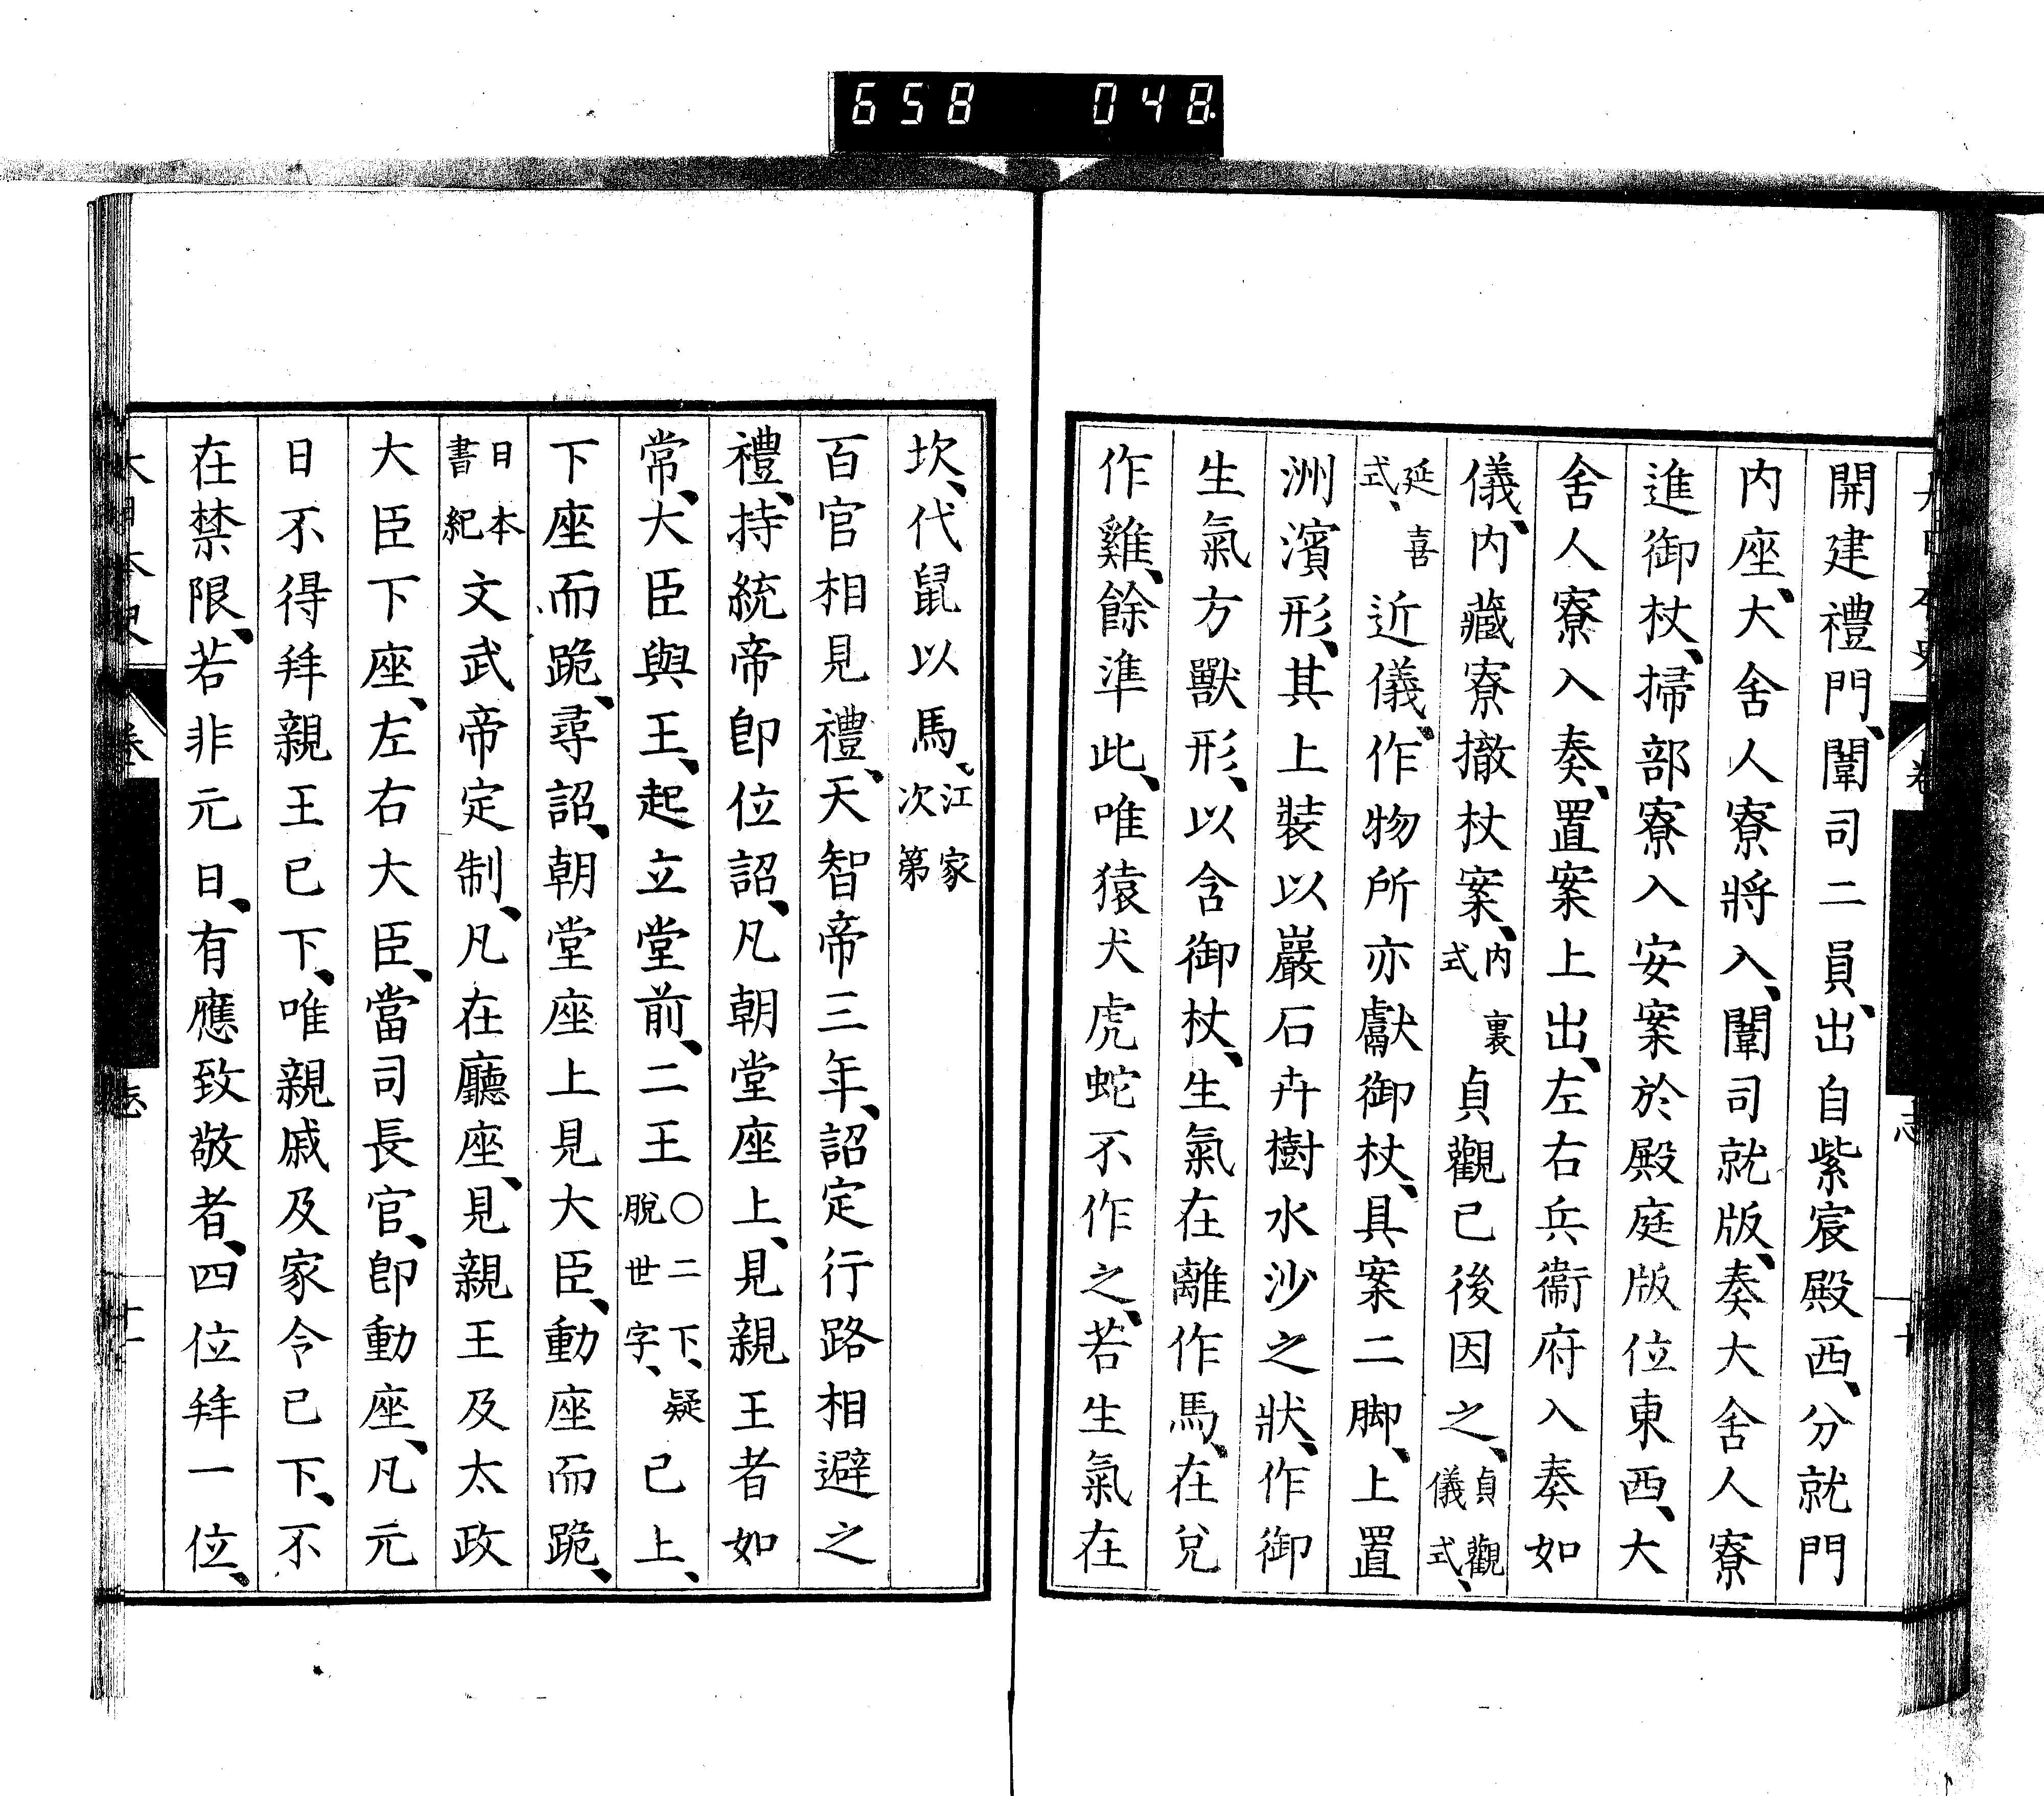 658 048
開建禮門、闈司二員、出自紫宸殿西、分就門
内座、大舍人寮將入、闈司就版、奏大舍人寮
進御杖、掃部寮入安案於殿庭版位東西、大
舍人寮入奏、置案案上出、左右兵衞府入奏如
儀、内藏寮撤杖案、内裏式 貞觀已後因之、貞觀儀式、
延喜式、近儀、作物所亦獻御杖、具案二脚、上置
洲濱形、其上裝以巖石卉樹水沙之狀、作御
生氣方獸形、以含御杖、生氣在離作馬、在兌
作雞、餘準此、唯猿犬虎蛇不作之、若生氣在
坎、代鼠以馬、江家次第
百官相見禮、天智帝三年、詔定行路相避之
禮、持統帝卽位詔、凡朝堂座上、見親王者如
常、大臣與王、起立堂前、二王○二下、疑脫世字、已上、
下座而跪、尋詔、朝堂座上見大臣、動座而跪、
日本書紀 文武帝定制、凡在廳座、見親王及太政
大臣下座、左右大臣、當司長官、卽動座、凡元
日不得拜親王已下、唯親戚及家令已下、不
在禁限、若非元日、有應致敬者、四位拜一位、